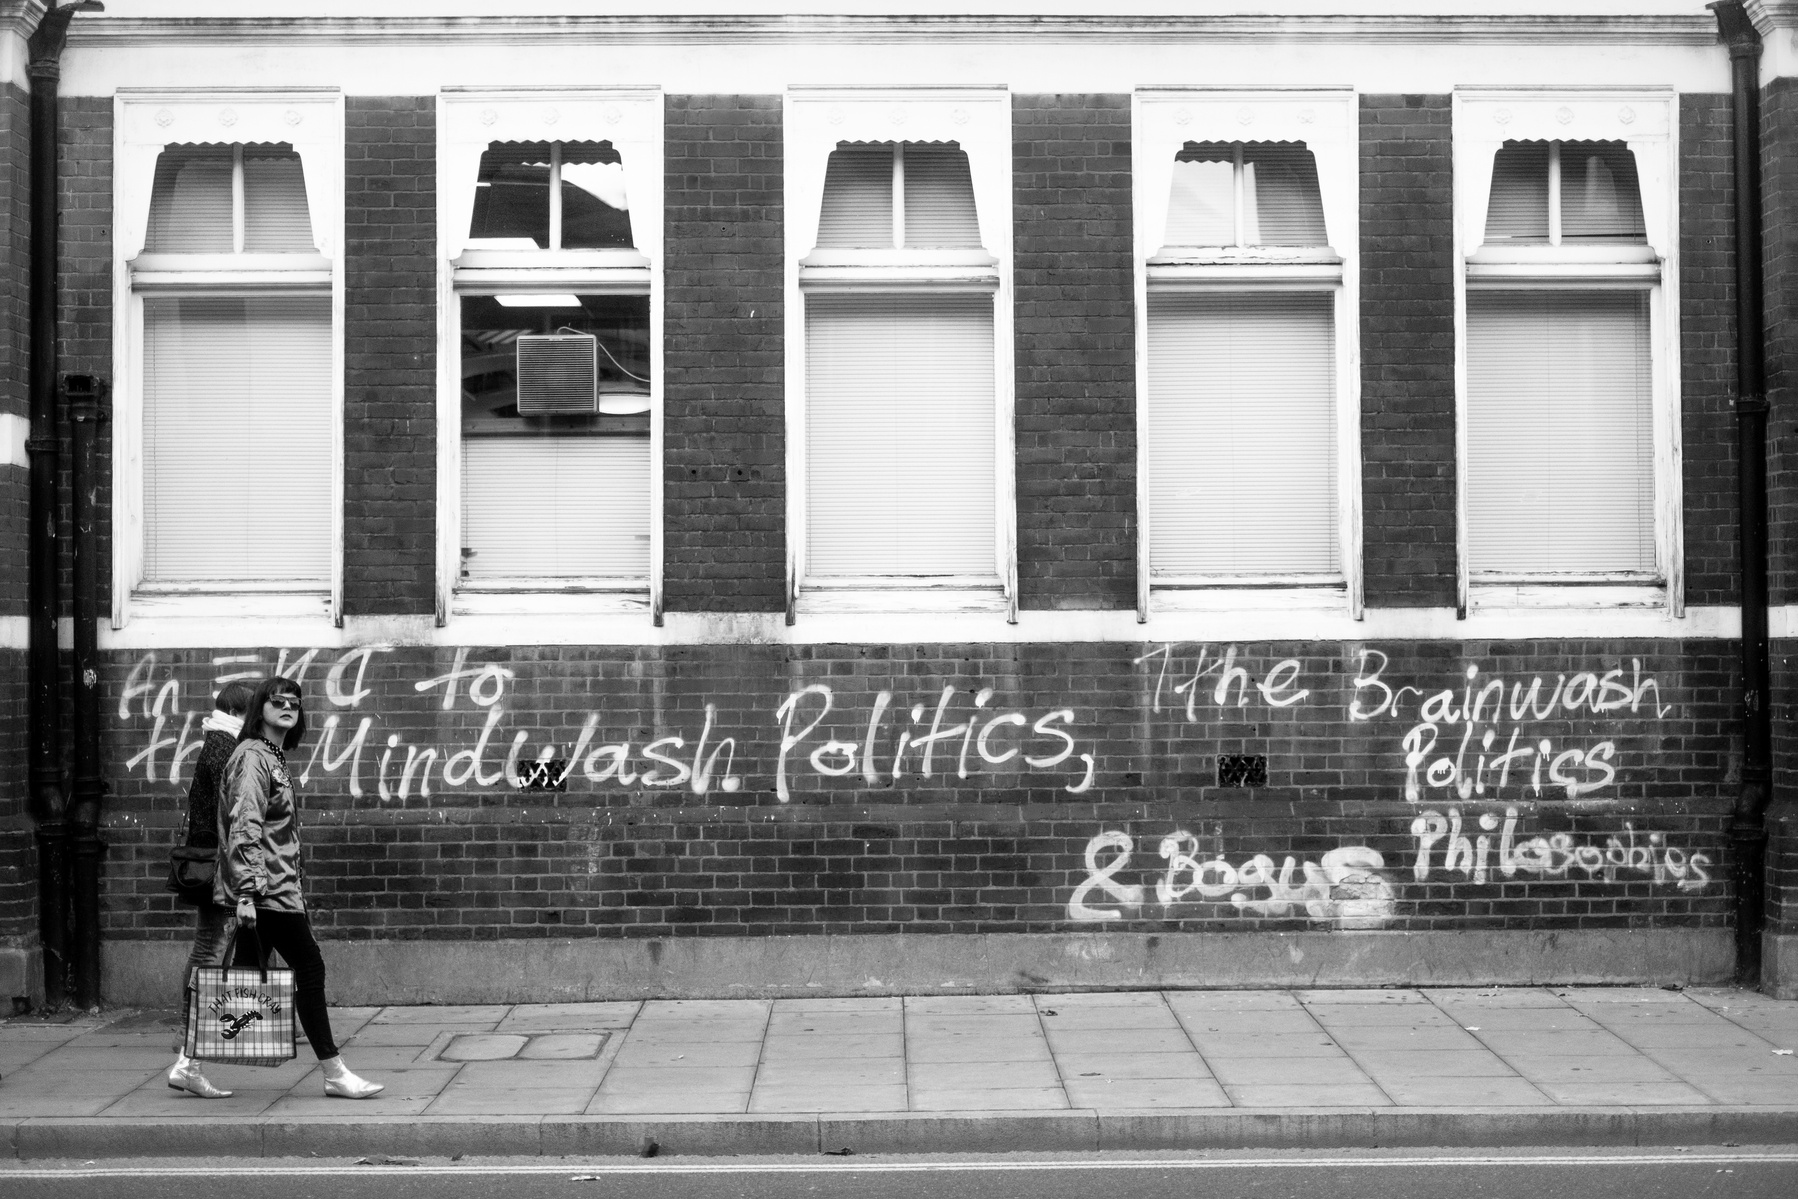 An End to
the Mindwash Politics,
1the Brainwash
Politics
& Bogus Philosophies
THAT FISH CRAY